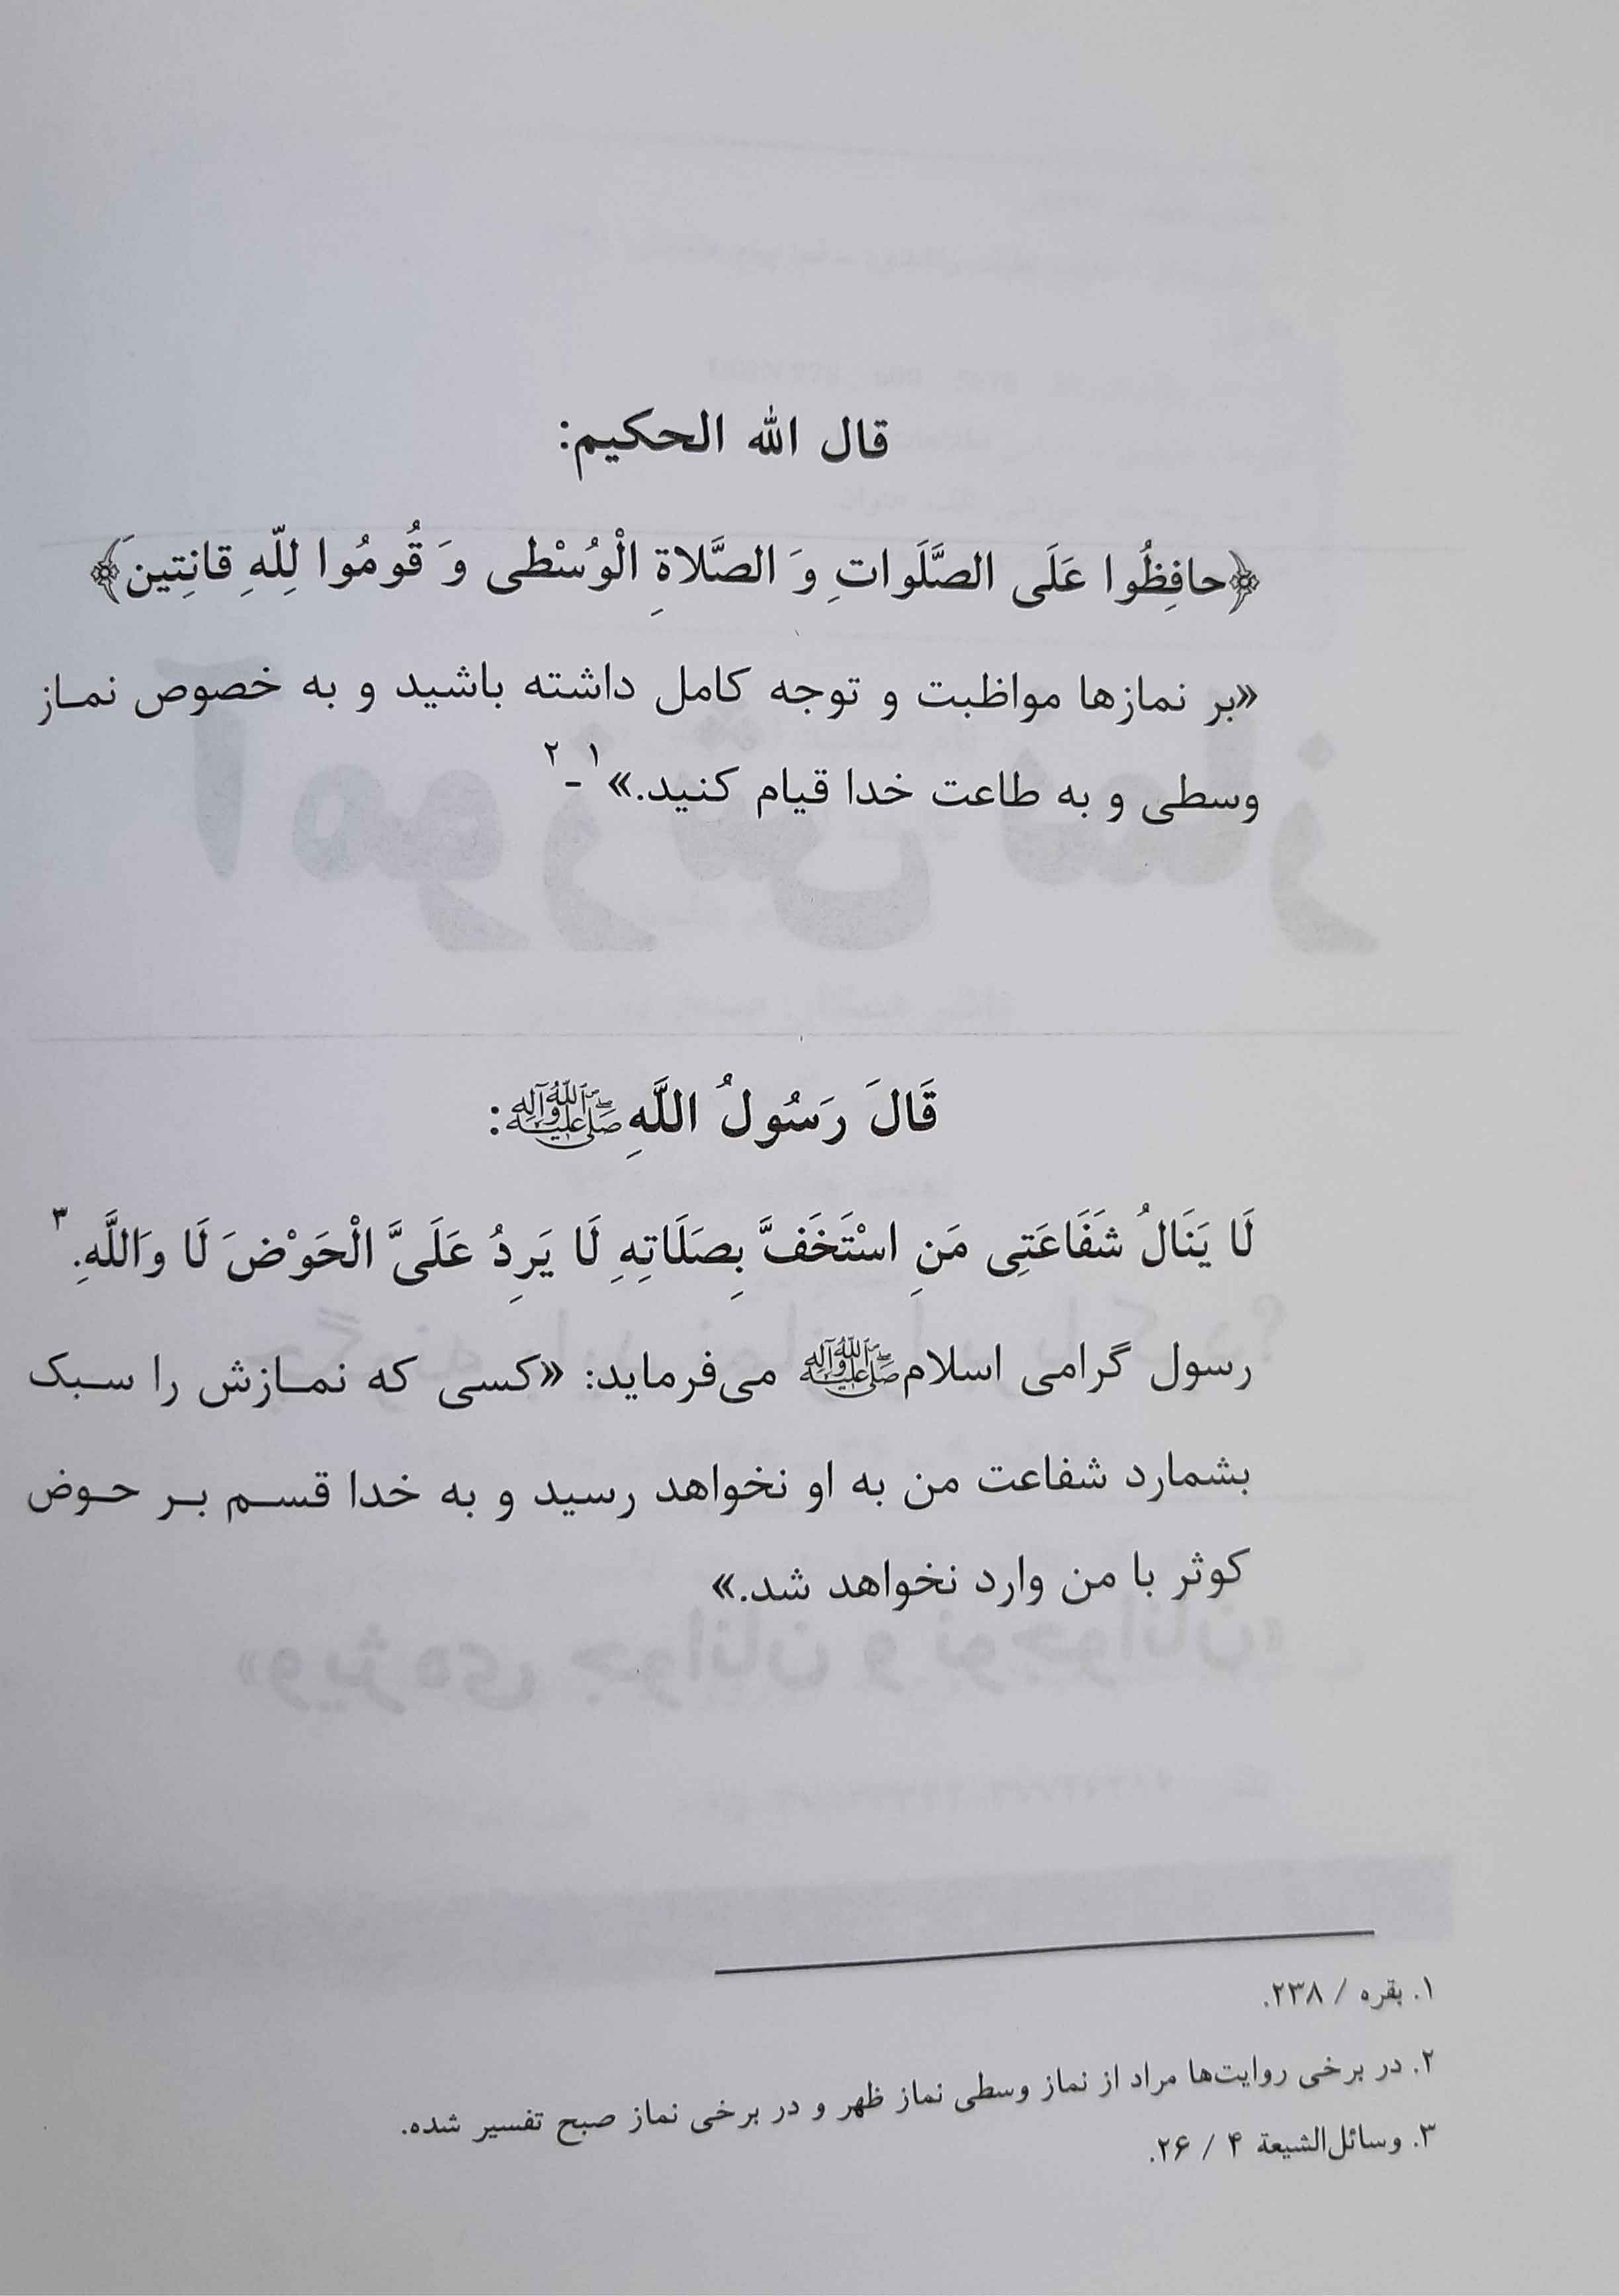 قال الله الحکیم:
﴿حافِظُوا عَلَى الصَّلَواتِ وَ الصَّلاةِ الْوُسْطى وَ قُومُوا لِلّهِ قانِتِينَ﴾
«بر نمازها مواظبت و توجه کامل داشته باشید و به خصوص نمـاز
وسطی و به طاعت خدا قیام کنید.»۱-۲
قَالَ رَسُولُ اللَّهِ ﷺ:
لَا يَنَالُ شَفَاعَتِی مَنِ اسْتَخَفَّ بِصَلَاتِهِ لَا يَرِدُ عَلَیَّ الْحَوْضَ لَا وَاللَّهِ.۳
رسول گرامی اسلام ﷺ می‌فرماید: «کسی که نمـازش را سـبک
بشمارد شفاعت من به او نخواهد رسید و به خدا قسـم بـر حـوض
کوثر با من وارد نخواهد شد.»
۱. بقره / ۲۳۸.
۲. در برخی روایت‌ها مراد از نماز وسطی نماز ظهر و در برخی نماز صبح تفسیر شده.
۳. وسائل‌الشیعة ۴ / ۲۶.